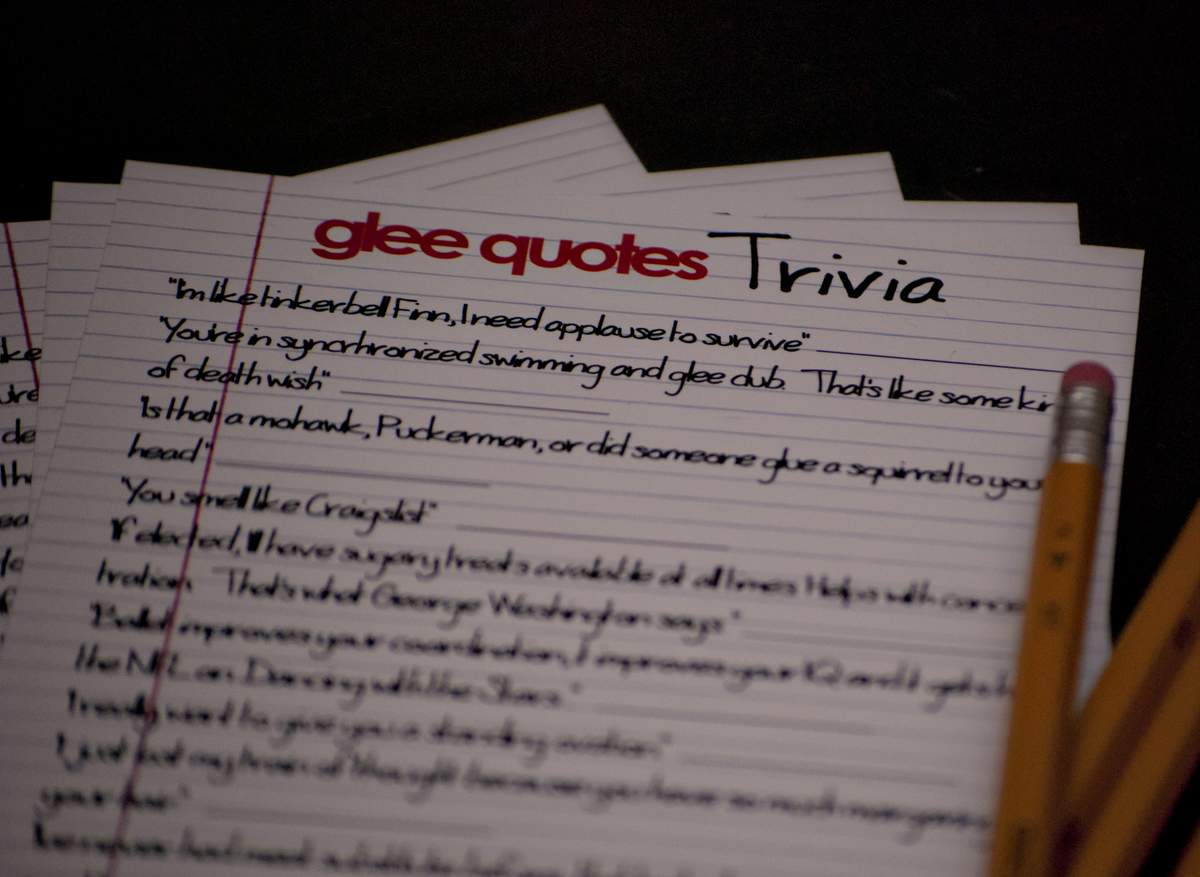 glee quotes Trivia
"I'm like tinkerbell Finn, I need applause to survive"
"You're in syncrhronized swimming and glee club. That's like some
of death wish"
Is that a mohawk, Puckerman, or did someone glue a squirrel to you
head"
"You smell like Craigslist"
If elected, I have sugary treats available at all times Helps with
tration. That's what George Washington says"
Ballet improves your coordination, it improves your IQ and it gets
the NFL on Dancing with the Stars"
I really want to give you a standing ovation"
I just thought because you have so much
your hair"
ke
de